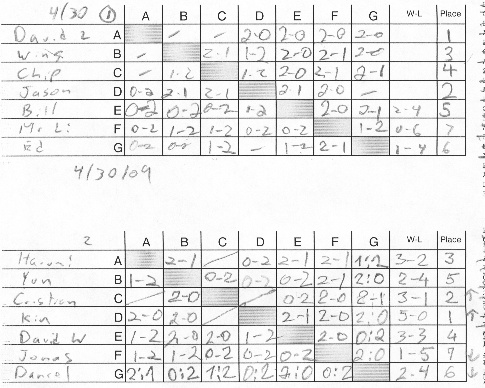 4/30 ① A B C D E F G W-L Place
David Z A — — 2-0 2-0 2-0 2-0 1
Wing B — 2-1 1-2 2-0 2-1 2-0 3
Chip C — 1-2 1-2 2-0 2-1 2-1 4
Jason D 0-2 2-1 2-1 2-1 2-0 — 2
Bill E 0-2 0-2 0-2 1-2 2-0 2-1 2-4 5
Mr Li F 0-2 1-2 1-2 0-2 0-2 1-2 0-6 7
Ed G 0-2 0-2 1-2 — 1-2 2-1 1-4 6
4/30/09
2 A B C D E F G W-L Place
A 2-1 0-2 2-1 2-1 3-2 3
Yun B 1-2 0-2 0-2 0-2 2-1 2:0 2-4 5
Cristian C 2-0 0-2 2-0 2-1 3-1 2 ↑
Kin D 2-0 2-0 2-1 2-0 2:0 5-0 1 ↑
David W E 1-2 2-0 2-0 1-2 2-0 0:2 3-3 4
Jonas F 1-2 1-2 0-2 0-2 0-2 2:0 1-5 7 ↓
Daniel G 2:1 0:2 1:2 0:2 2:0 0:2 2-4 6 ↓